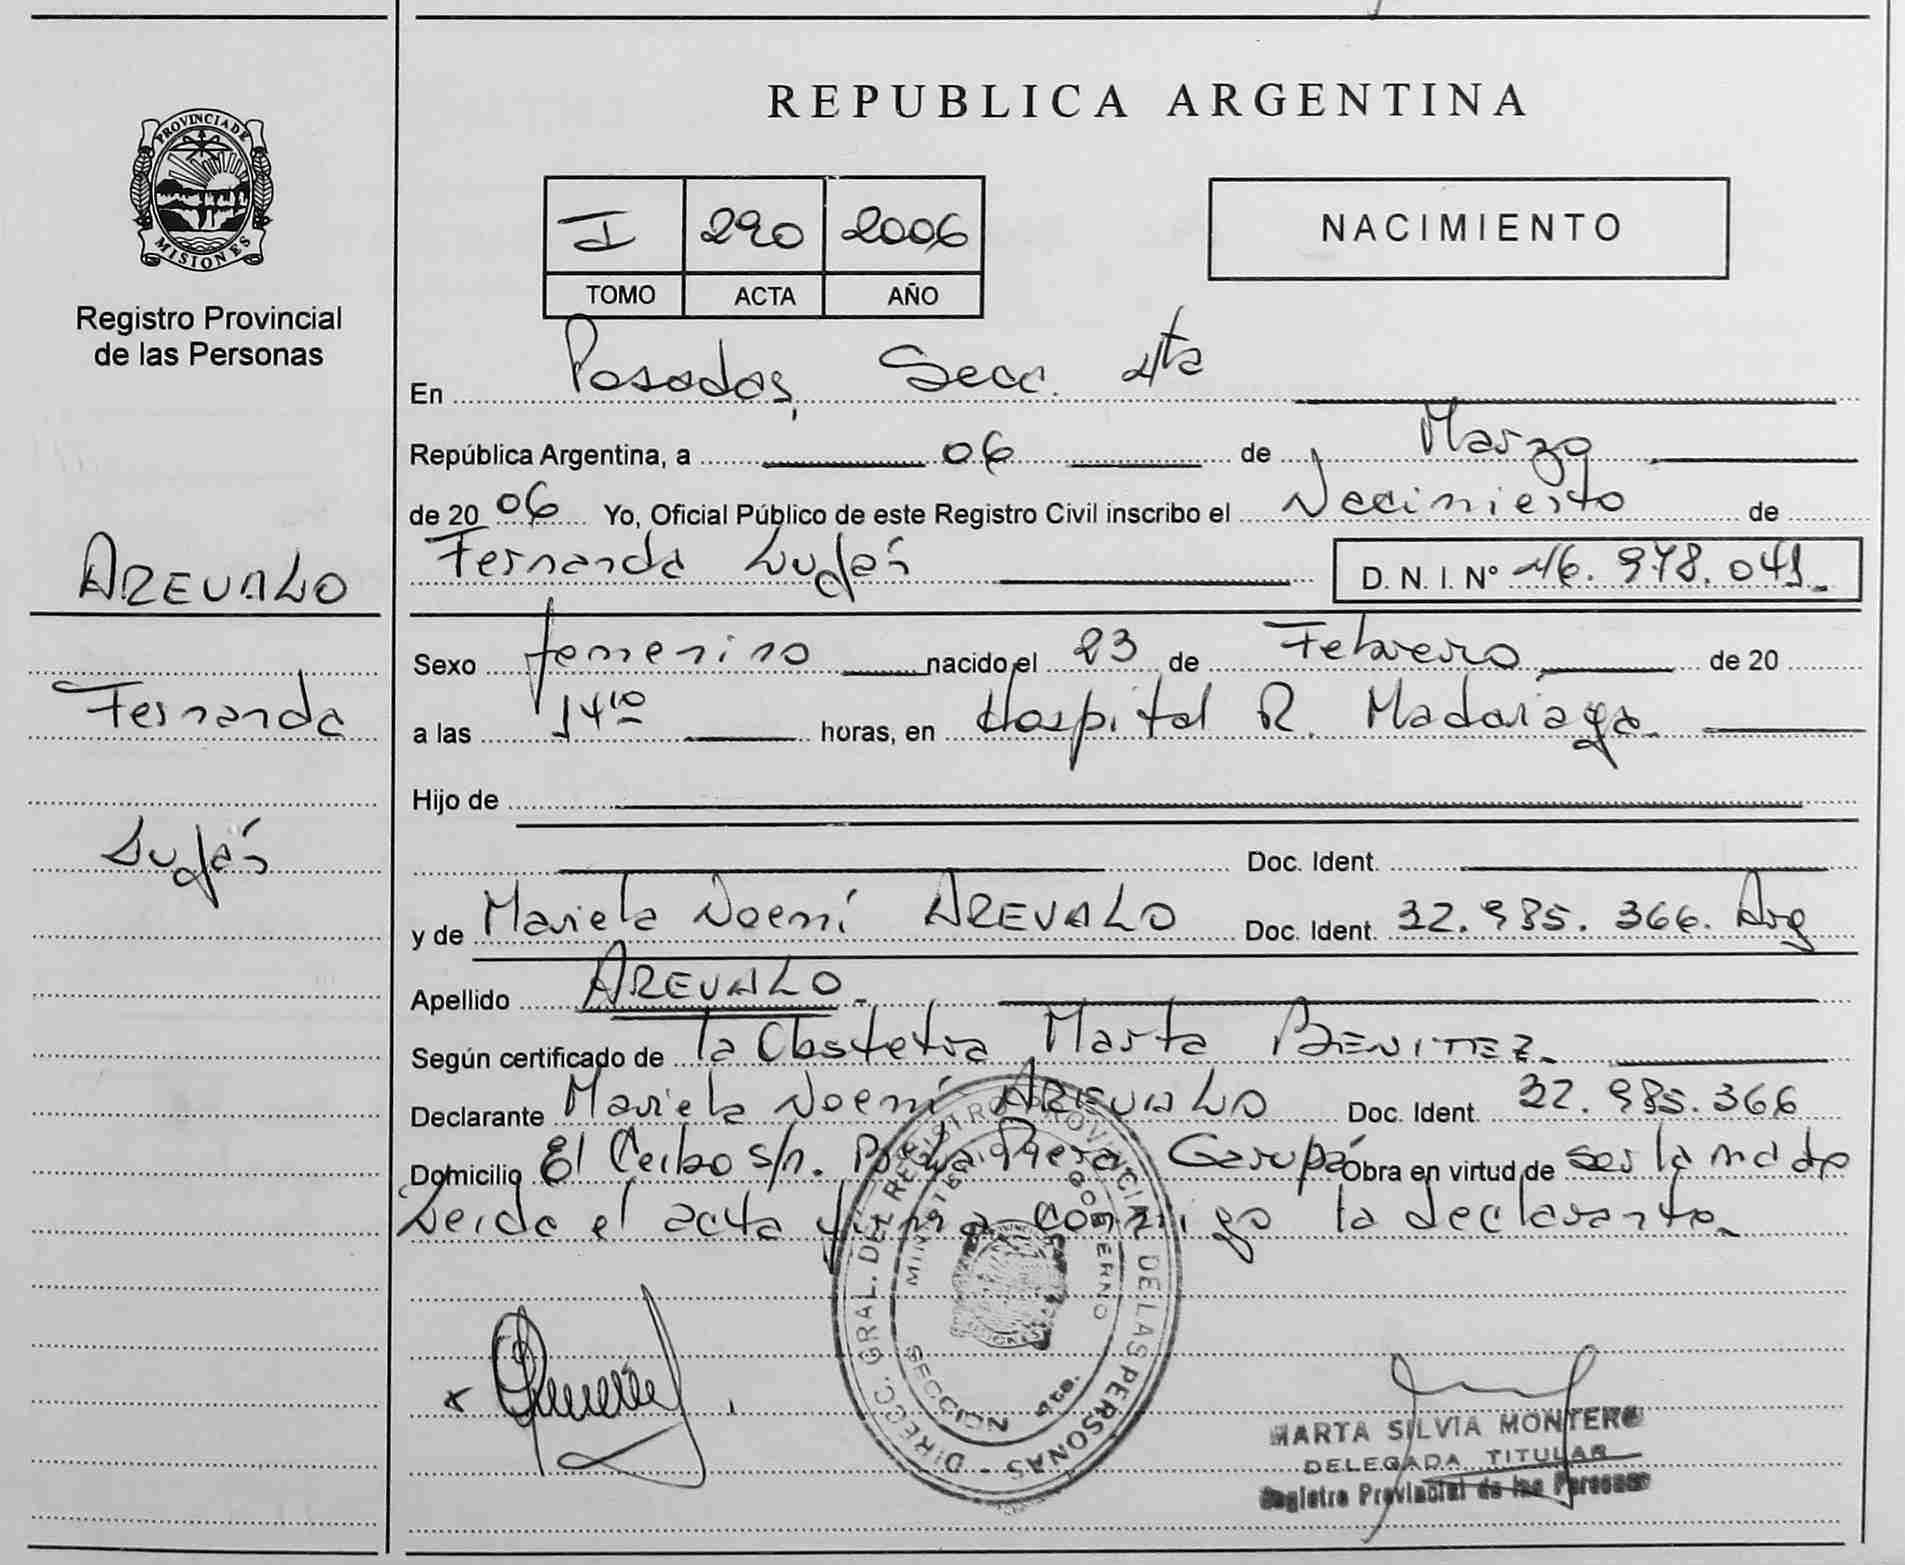 PROVINCIA DE
MISIONES
Registro Provincial
de las Personas
AREVALO
Fernanda
Luján
REPUBLICA ARGENTINA
I 290 2006
TOMO ACTA AÑO
NACIMIENTO
En Posadas, Secc. 4ta
República Argentina, a 06 de Marzo
de 20 06 Yo, Oficial Público de este Registro Civil inscribo el Nacimiento de
Fernanda Luján D. N. I. Nº 46. 978. 041.
Sexo femenino nacido el 23 de Febrero de 20
a las 14 10 horas, en Hospital R. Madariaga.
Hijo de
Doc. Ident.
y de Mariela Noemí AREVALO Doc. Ident. 32. 985. 366. Arg
Apellido AREVALO.
Según certificado de la Obstetra Marta BENITEZ.
Declarante Mariela Noemí AREVALO Doc. Ident. 32. 985. 366
Domicilio El Ceibo s/n. Garupá Obra en virtud de ser la madre
Leida el acta firma conmigo la declarante.
DIRECC. GRAL. DEL REGISTRO PROVINCIAL DE LAS PERSONAS
MINISTERIO GOBIERNO
SECCION 4ta.
MARTA SILVIA MONTERO
DELEGADA TITULAR
Registro Provincial de las Personas